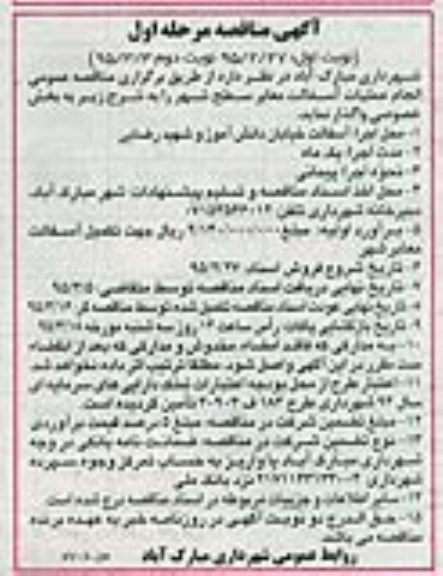 آگهی مناقصه مرحله اول
(نوبت اول: ۹۵/۲/۲۷ نوبت دوم ۹۵/۳/۳)
شهرداری مبارک آباد در نظر دارد از طریق برگزاری مناقصه عمومی
انجام عملیات آسفالت معابر سطح شهر را به شرح زیر به بخش
خصوصی واگذار نماید.
۱- محل اجرا: آسفالت خیابان دانش آموز و شهید رضایی
۲- مدت اجرا: یک ماه
۳- نحوه اجرا: پیمانی
۴- محل اخذ اسناد مناقصه و تسلیم پیشنهادات شهر مبارک آباد،
دبیرخانه شهرداری تلفن
۵- برآورد اولیه: مبلغ ریال جهت تکمیل آسفالت
معابر شهر
۶- تاریخ شروع فروش اسناد: ۹۵/۲/۲۷
۷- تاریخ نهایی دریافت اسناد مناقصه توسط متقاضی: ۹۵/۳/۵
۸- تاریخ نهایی عودت اسناد مناقصه تکمیل شده توسط مناقصه گر
۹- تاریخ بازگشایی پاکات رأس ساعت روز سه شنبه مورخه
۱۰- به مدارکی که فاقد امضاء، مخدوش و مدارکی که بعد از انقضاء
مدت مقرر در این آگهی واصل شود، مطلقا ترتیب اثر داده نخواهد شد.
۱۱- اعتبار طرح از محل بودجه اعتبارات تملک دارایی های سرمایه ای
سال شهرداری طرح تأمین گردیده است.
۱۲- مبلغ تضمین شرکت در مناقصه: مبلغ ۵ درصد قیمت برآوردی
۱۳- نوع تضمین شرکت در مناقصه: ضمانت نامه بانکی در وجه
شهرداری مبارک آباد یا واریز به حساب تمرکز وجوه سپرده
شهرداری نزد بانک ملی
۱۴- سایر اطلاعات و جزییات مربوطه در اسناد مناقصه درج شده است
۱۵- حق الدرج دو نوبت آگهی در روزنامه خبر به عهده برنده
مناقصه می باشد.
روابط عمومی شهرداری مبارک آباد